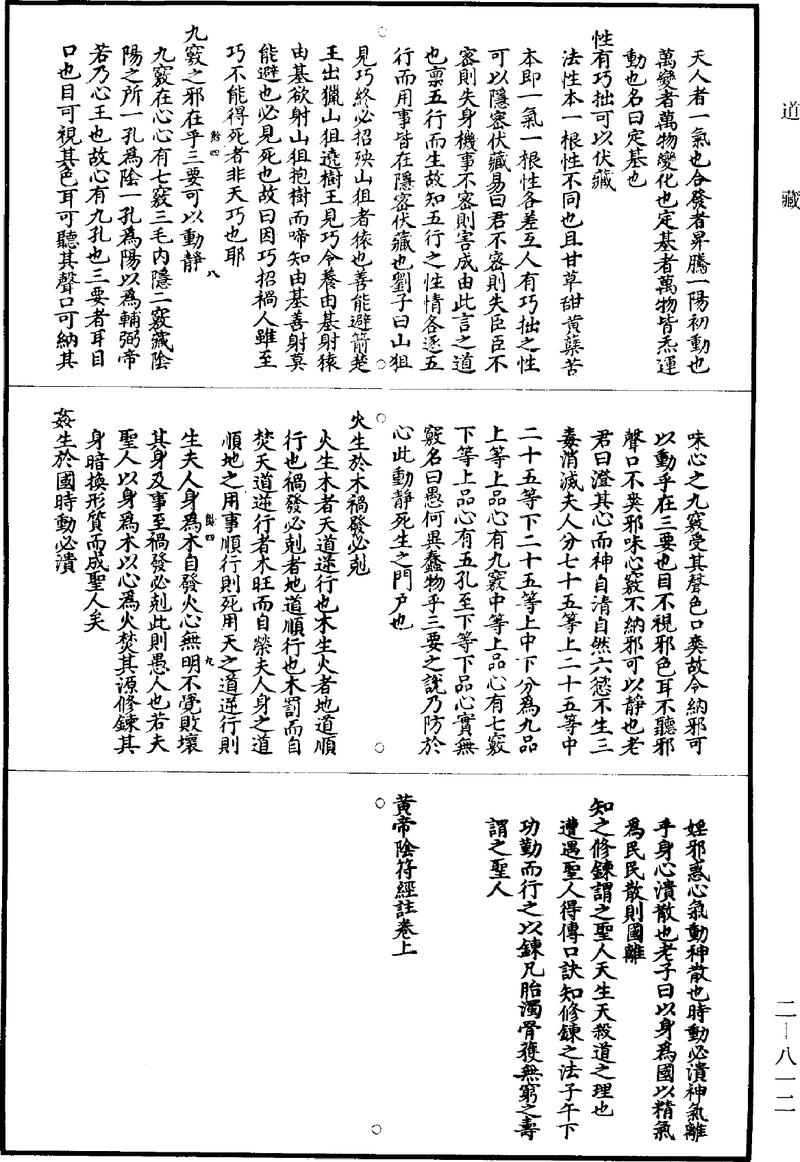 道藏
天人者一氣也合發者昇騰一陽初動也
萬變者萬物變化也定基者萬物皆炁運
動也名曰定基也
性有巧拙可以伏藏
法性本一根性不同也且甘草甜黃蘗苦
本即一氣一根性各差互人有巧拙之性
可以隱密伏藏易曰君不密則失臣臣不
密則失身機事不密則害成由此言之道
也禀五行而生故知五行之性情各逐五
行而用事皆在隱密伏藏也劉子曰山狙
見巧終必招殃山狙者猿也善能避箭楚
王出獵山狙遶樹王見巧令養由基射猿
由基欲射山狙抱樹而啼知由基善射莫
能避也必見死也故曰因巧招禍人雖至
巧不能得死者非天巧也耶
九竅之邪在乎三要可以動靜
九竅在心心有七竅三毛內隱二竅藏陰
陽之所一孔為陰一孔為陽以為輔弼帝
若乃心王也故心有九孔也三要者耳目
口也目可視其色耳可聽其聲口可納其
餘四 八
味心之九竅受其聲色口爽故令納邪可
以動乎在三要也目不視邪色耳不聽邪
聲口不爽邪味心竅不納邪可以靜也老
君曰澄其心而神自清自然六慾不生三
毒消滅夫人分七十五等上二十五等中
二十五等下二十五等上中下分為九品
上等上品心有九竅中等上品心有七竅
下等上品心有五孔至下等下品心實無
竅名曰愚何異蠢物乎三要之說乃防於
心此動靜死生之門户也
火生於木禍發必剋
火生木者天道逆行也木生火者地道順
行也禍發必剋者地道順行也木罰而自
焚天道逆行者木旺而自榮夫人身之道
順地之用事順行則死用天之道逆行則
生夫人身為木自發火心無明不覺敗壞
其身及事至禍發必剋此則愚人也若夫
聖人以身為木以心為火焚其源修鍊其
身暗換形質而成聖人矣
姦生於國時動必潰
餘四 九
婬邪惑心氣動神散也時動必潰神氣離
乎身心潰散也老子曰以身為國以精氣
為民民散則國離
知之修鍊謂之聖人天生天殺道之理也
遭遇聖人得傳口訣知修鍊之法子午下
功勤而行之以鍊凡胎濁骨獲無窮之壽
謂之聖人
黃帝陰符經註卷上
二-八一二